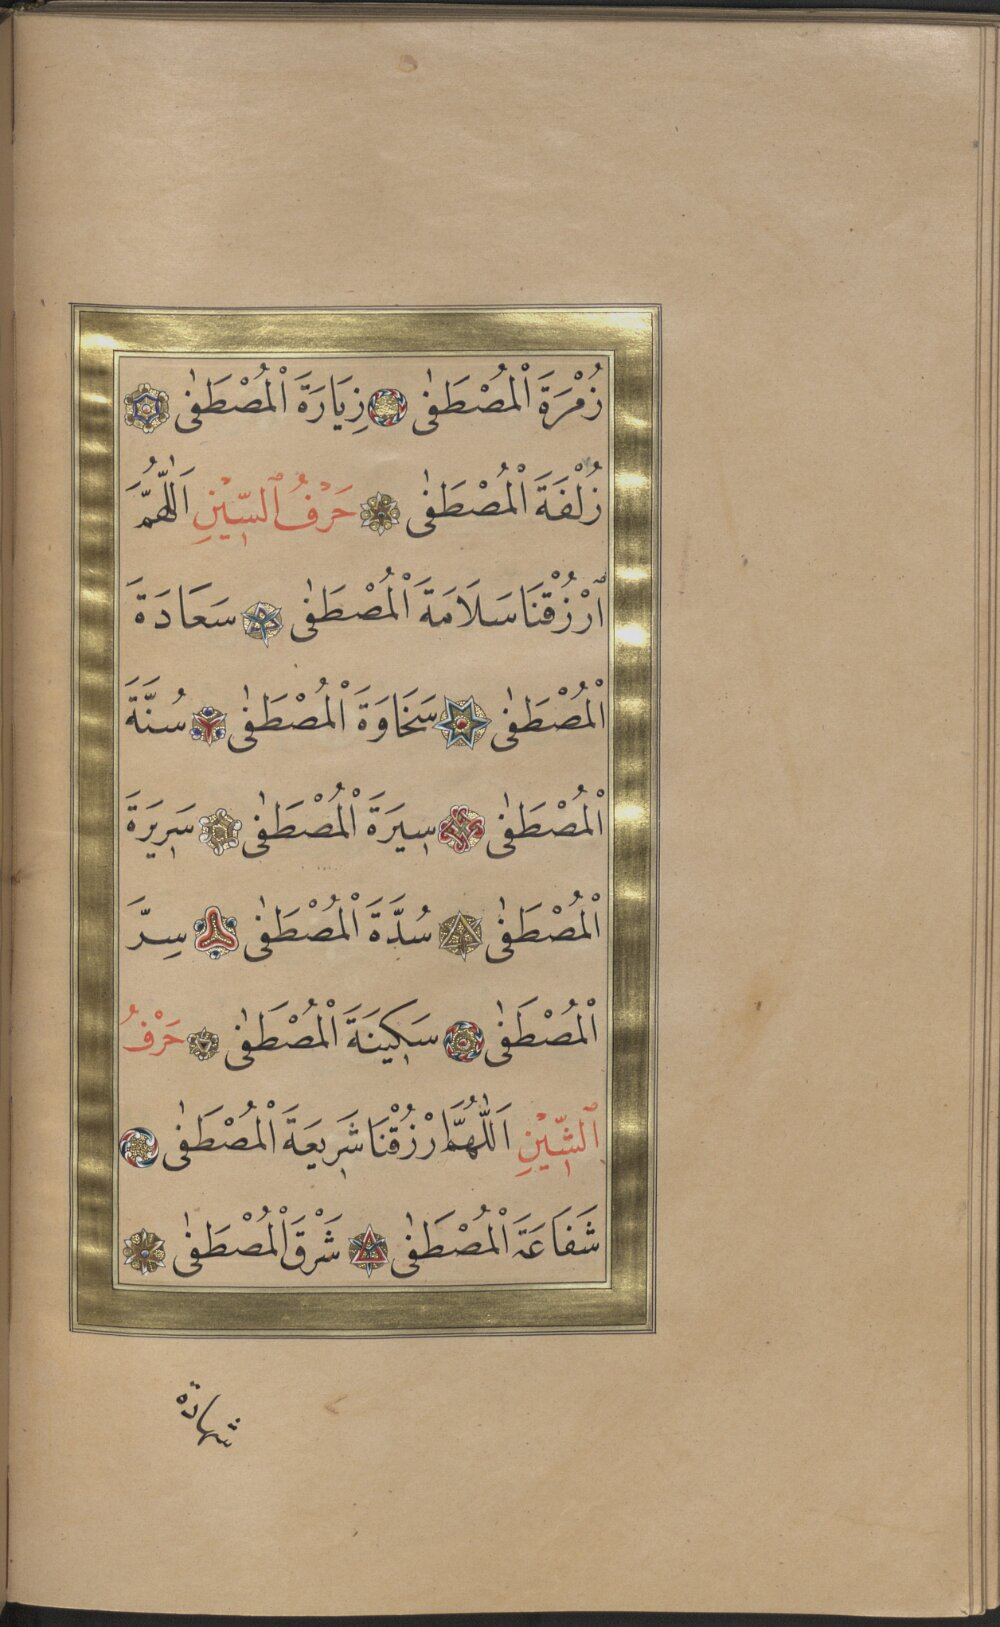 زُمْرَةَ الْمُصْطَفٰى زِيَارَةَ الْمُصْطَفٰى
زُلْفَةَ الْمُصْطَفٰى حَرْفُ السِّيْنِ اَللّٰهُمَّ
ارْزُقْنَا سَلَامَةَ الْمُصْطَفٰى سَعَادَةَ
الْمُصْطَفٰى سَخَاوَةَ الْمُصْطَفٰى سُنَّةَ
الْمُصْطَفٰى سِيرَةَ الْمُصْطَفٰى سَرِيرَةَ
الْمُصْطَفٰى سُدَّةَ الْمُصْطَفٰى سِرَّ
الْمُصْطَفٰى سَكِينَةَ الْمُصْطَفٰى حَرْفُ
الشِّيْنِ اَللّٰهُمَّ ارْزُقْنَا شَرِيعَةَ الْمُصْطَفٰى
شَفَاعَةَ الْمُصْطَفٰى شَرْقَ الْمُصْطَفٰى
شهادة